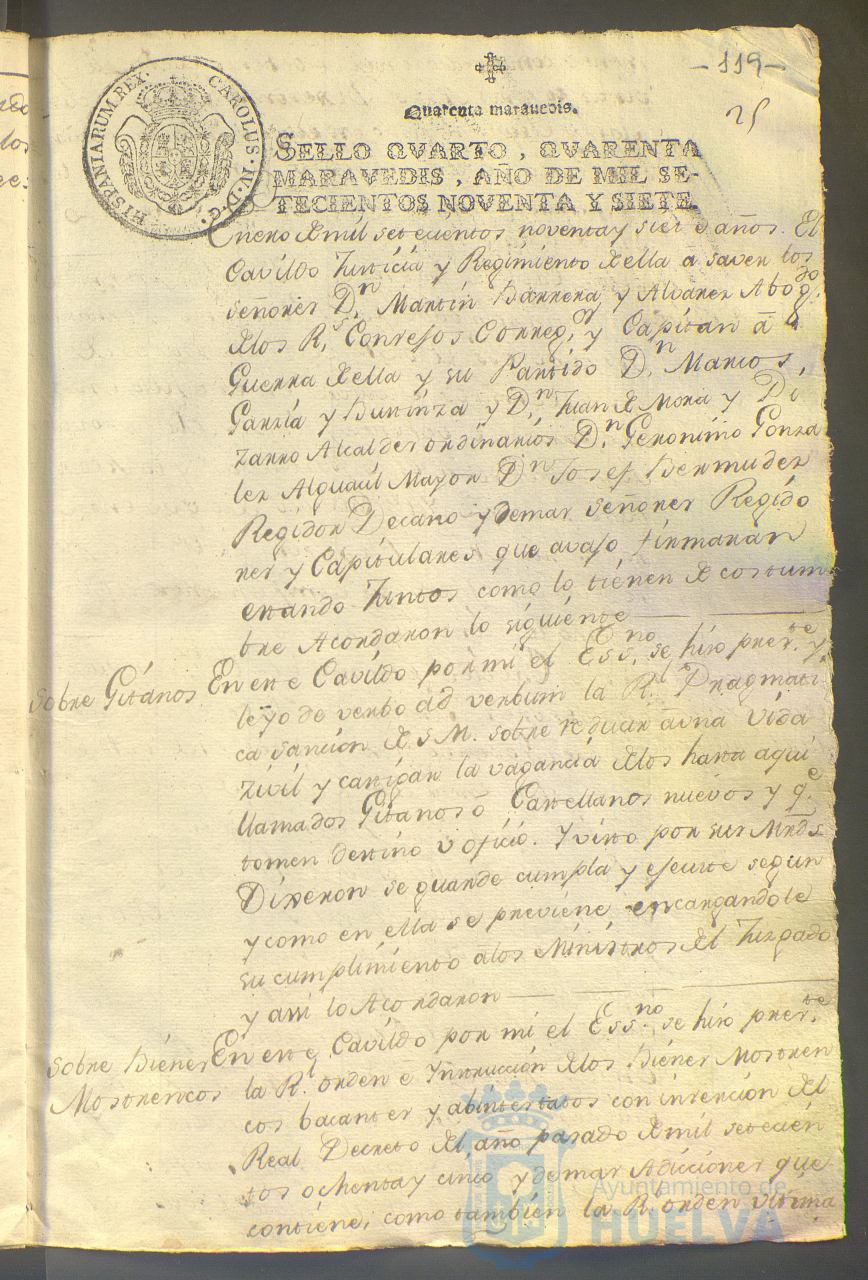 -119-
25
Quarenta marauedis.
HISPANIARUM REX. CAROLUS. IV. D. G.
SELLO QVARTO, QVARENTA
MARAVEDIS, AÑO DE MIL SE-
TECIENTOS NOVENTA Y SIETE.
Enero de mil setecientos noventa y siete años. El
Cavildo Justicia y Regimiento de ella a saver los
señores Dn. Martin Barrera y Alvarez Abogdo.
de los Rs. Consejos Corregor. y Capitan a
Guerra de ella y su Partido Dn. Marcos
Garzia y y Dn. Juan de Mora y Pi
zarro Alcaldes ordinarios Dn. Geronimo Gonza
lez Alguacil Mayor Dn Josef Bermudez
Regidor Decano y demas señores Regido
res y Capitulares que avajo firmaran
estando Juntos como lo tienen de costum
bre Acordaron lo siguiente
Sobre Gitanos
En este Cavildo por mi el Essno. se hizo preste. y
leyo de verbo ad verbum la Rl. Pragmati
ca sancion de S.M. sobre reducir a una vida
Zivil y castigar la vagancia de los hasta aqui
llamados Gitanos o Castellanos nuevos y qe.
tomen destino u oficio. Y visto por sus Mrds
Dixeron se guarde cumpla y execute segun
y como en ella se previene encargandole
su cumplimiento a los Ministros del Juzgado
y assi lo Acordaron
Sobre Bienes
Mostrencos
En este Cavildo por mi el Essno. se hizo preste.
la Rl. orden e Ynstruccion de los Bienes Mostren
cos bacantes y abintestatos con insercion del
Real Decreto del año pasado de mil setecien
tos ochenta y cinco y demas Adicciones que
contiene, como tambien la Rl. orden ultima
Ayuntamiento de
HUELVA